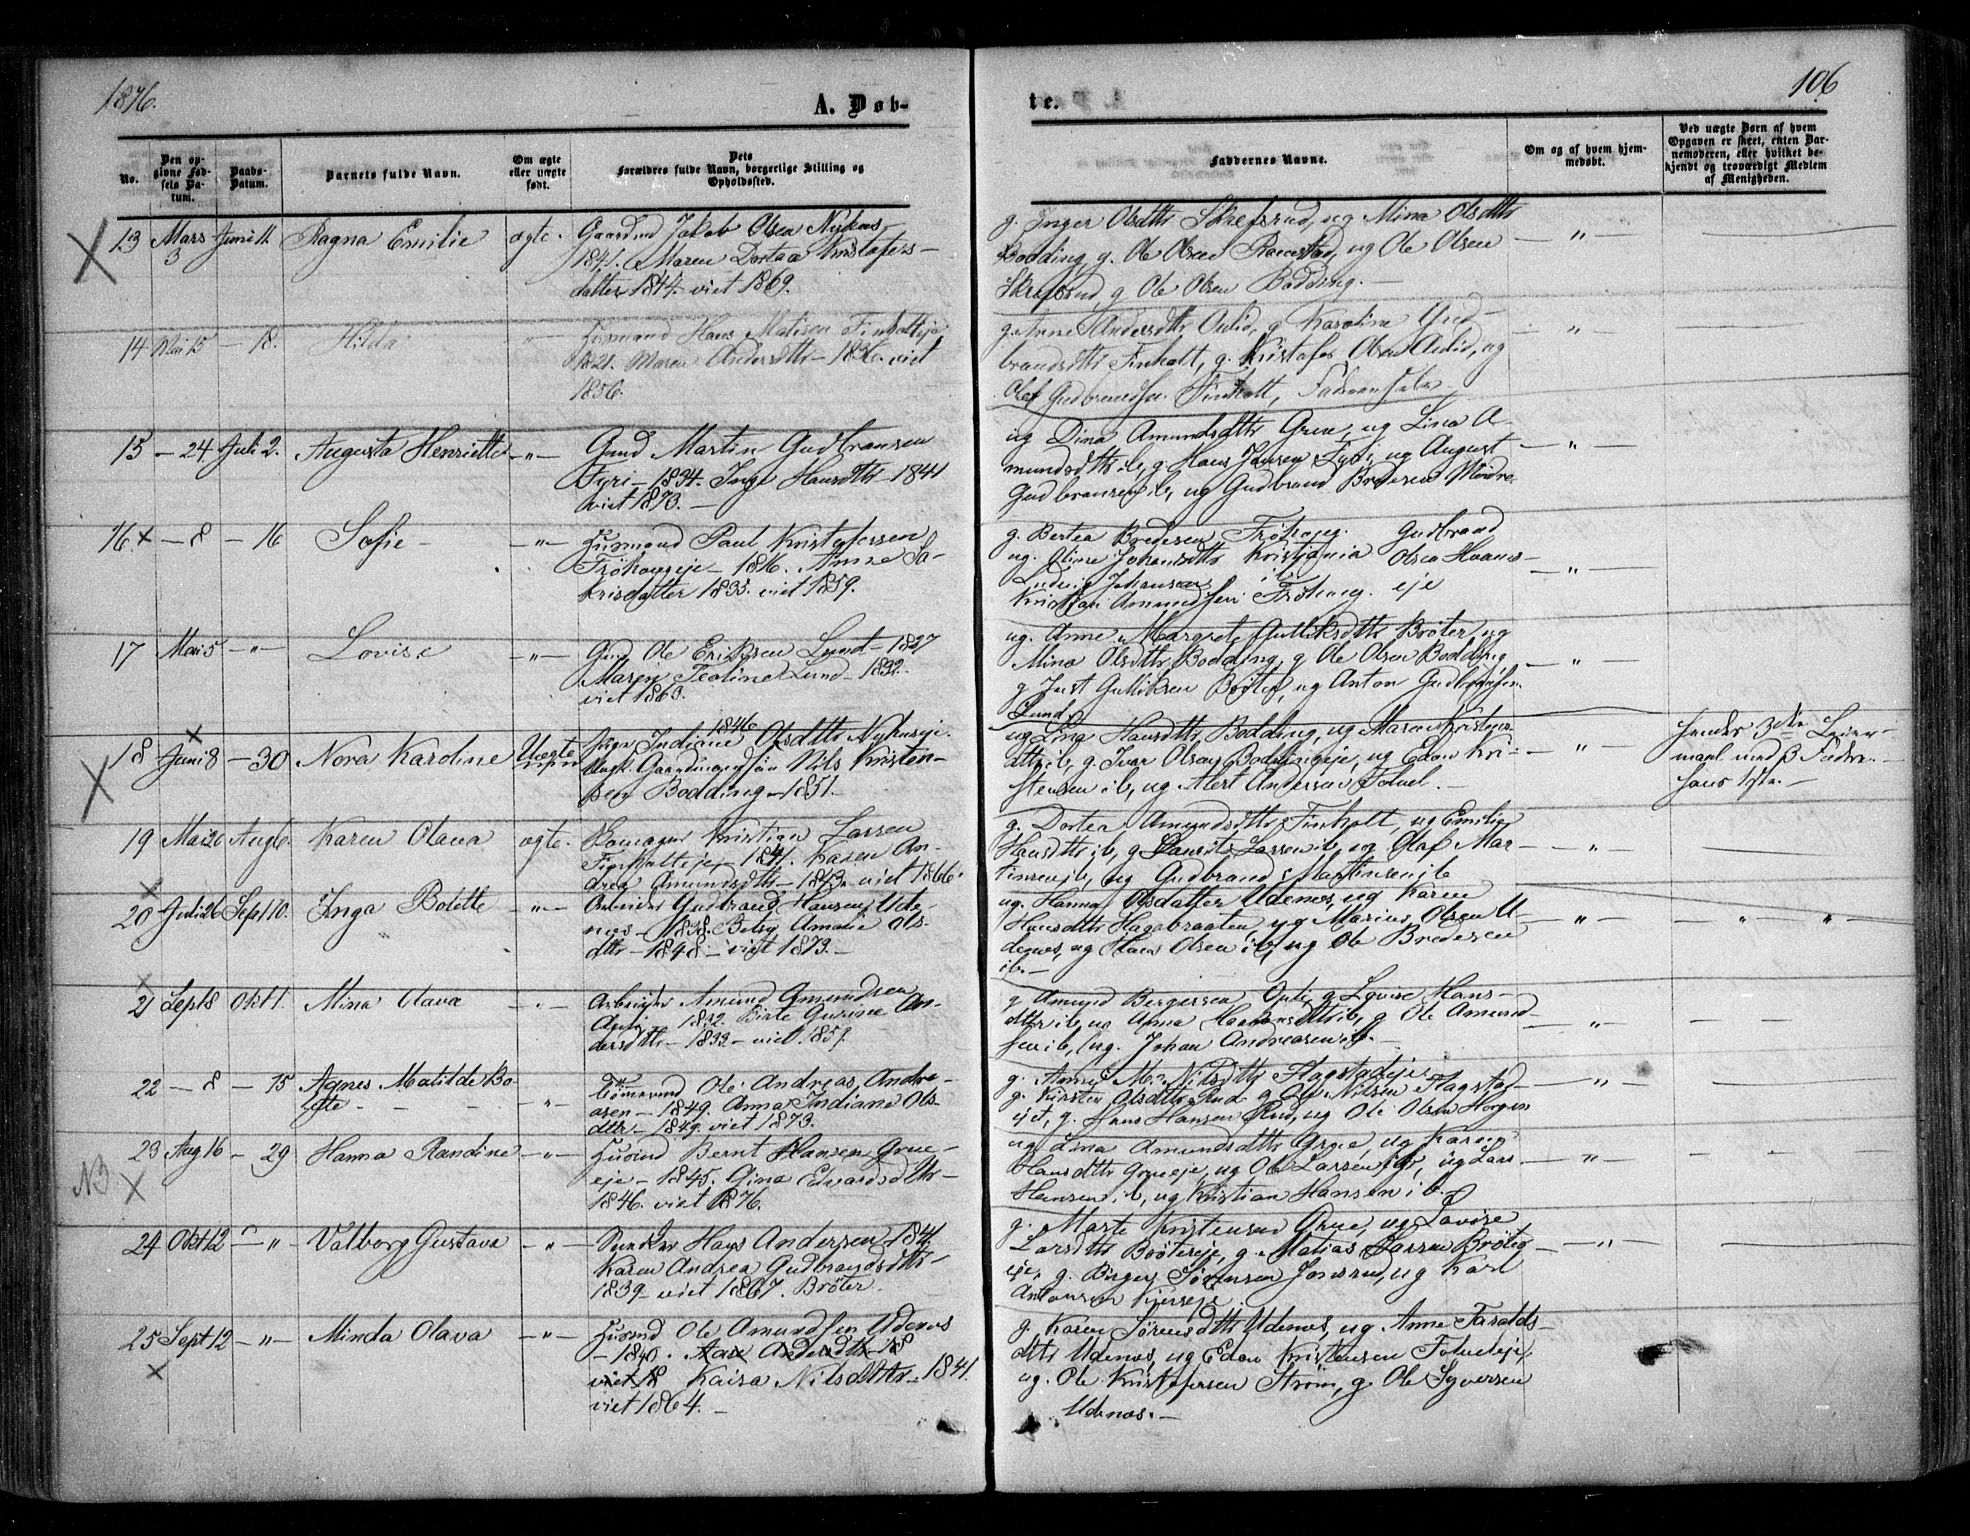 1876.
A. Døb-
te.
106
No.
Den op-
givne Fød-
sels Da-
tum.
Daabs-
Datum.
Barnets fulde Navn.
Om ægte
eller uægte
født.
Dets
Forældres fulde Navn, borgerlige Stilling og
Opholdssted.
Faddernes Navne.
Om og af hvem hjem-
medøbt.
Ved uægte Børn af hvem
Opgaven er skeet, enten Bar-
nemoderen, eller hvilket be-
kjendt og troværdigt Medlem
af Menigheden.
13 Mars 3 Juni 11 Ragna Emilie ægte. Gaardmd Jakob Olsen Nykaas
1841. Maren Dortea Kristofers-
datter 1844. viet 1869.
g. Inger Olsdttr Skrefsrud, ug Mina Olsdttr
Bodding, g. Ole Olsen Ramstad, ug Ole Olsen
Skrefsrud, g Ole Olsen Bodding. —
14 Mai 15 — 18. Hilda Husmand Hans Matisen Finholteje
1821. Maren Andersdttr — 1836. viet
1856.
g. Anne Andersdttr Aulid, g Karoline Gud-
brandsdttr Finholt, g. Kristofer Olsen Aulid, ug
Olof Gudbrandsen Finholt, Faderen selv
15 — 24 Juli 2. Augusta Henriette — " — Gmd Martin Gudbransen
Fyri — 1834. Inge Hansdttr — 1841
viet 1873. —
ug Dina Amundsdttr Grue, ug Lina A-
mundsdttr ib, g. Hans Jansen Fyri, ug August
Gudbransen ib, ug Gudbrand Bredesen
16 x — 8 — 16 Sofie — " — Husmand Paul Kristofersen
Frøhaugeje — 1836. Anne Sa-
krisdatter 1835. viet 1859.
g. Bertea Bredesen Frøhaug. Gudbrand
ug. Oline Johansdttr Kristiania Olsen Hvams-
Ludvig Johansens ib
Kristian Amundsen Frøhaug. eje
17 Mai 5 — " — Lovise — " — Gmd Ole Eriksen Lund — 1827
Maren Teoline Lund — 1832.
viet 1863.
ug. Anne Margrete Gulliksdttr Brøter, ug
Mina Olsdttr Bodding, g Ole Olsen Bodding
g Just Gulliksen Brøter, ug Anton Gudbrandsen
Lund.
18 Juni 8 — 30 Nora Karoline Uægte Pige Indiane Olsdttr Nykaseje. 1846
Ungk. Gaardmandssøn Nils Kristen-
sen Bodding — 1851.
ug Lina Hansdttr Bodding, ug Maren Kristens-
dttr ib, g. Ivar Olsen Boddingeje, ug Edon Kri-
stensen ib, ug Alert Andersen
hendes 3die Leier-
maal med B. Fadre.
hans 1ste. —
19 Mai 20 Aug 6. Karen Olava ægte. Skomager Kristian Larsen
Finholteje — 1841. Karen An-
drea Amundsdttr — 1843. viet 1866.
g. Dortea Amundsdttr Finholt, ug Emilie
Hansdttr ib, g Laurits Larsen ib, ug Olaf Mar-
tinsen ib, ug Gudbrand Martinsen ib
20 Juli 26 Sept 10. Inga Bolette — " — Arbeider Gudbrand Hansen Ude-
næs — 1838. Betsy Amalie Ols-
dttr — 1848 — viet 1873. —
ug. Hanna Olsdatter Udenes, ug Karen
Hansdttr Hagabraaten, ug Marius Olsen U-
denes, ug Hans Olsen ib, ug Ole Bredesen
ib. —
21 Sept 8 Okt 1. Mina Olava Arbeider Amund Amundsen
1832. Birte Gurine An-
dersdttr — 1833 — viet 1857.
g Amund Bergersen Opli, g Lovise Hans-
dttr ib, ug Anna Haakensdttr ib, g Ole Amund-
sen ib, ug. Johan Andreasen ib. —
22 — 8 — 15 Agnes Matilde Bo-
lette Tømmermd Ole Andreas Andre-
asen — 1849. Anna Indiane Ols-
dttr — 1849. viet 1873.
g. Anne M. Nilsdttr Flagstadeje,
g. Kirsten Olsdttr Rud, g Ole Nilsen Flagstad-
ejet, g. Hans Hansen Rud, ug Ole Olsen Horgen
NB
23 Aug 16 — 29 Hanna Randine — " — Husmd Bernt Hansen Grue-
eje — 1845. Gina Edvardsdttr —
1846. viet 1876.
ug Lina Amundsdttr Grue, ug Karen
Hansdttr Grueeje, ug Ole Larsen Fyri, ug Lars
Hansen ib, ug Kristian Hansen ib.
24 Okt 12 — " — Valborg Gustava — " — Snedker Hans Andersen 1841
Karen Andrea Gudbrandsdttr —
1839 — viet 1867. Brøter.
g. Marte Kristensen Grue, ug Lovise
Larsdttr Brøtereje, g. Matias Larsen Brøter
eje. g. Birger Sørensen Jonsrud, ug Karl
Antonsen Kjerreje.
25 Sept 12 — " — Minda Olava — " — Husmd Ole Amundsen Udenæs
— 1840. Aase Andersdttr 18
viet 18 Kaisa Nilsdttr — 1841.
viet 1864. —
g. Karen Sørensdttr Udenæs, ug Anne Haralds-
dttr Udenæs, ug Edon Kristensen Foloeleje,
ug. Ole Kristofersen Strøm, g. Ole Syversen
Udenæs. —